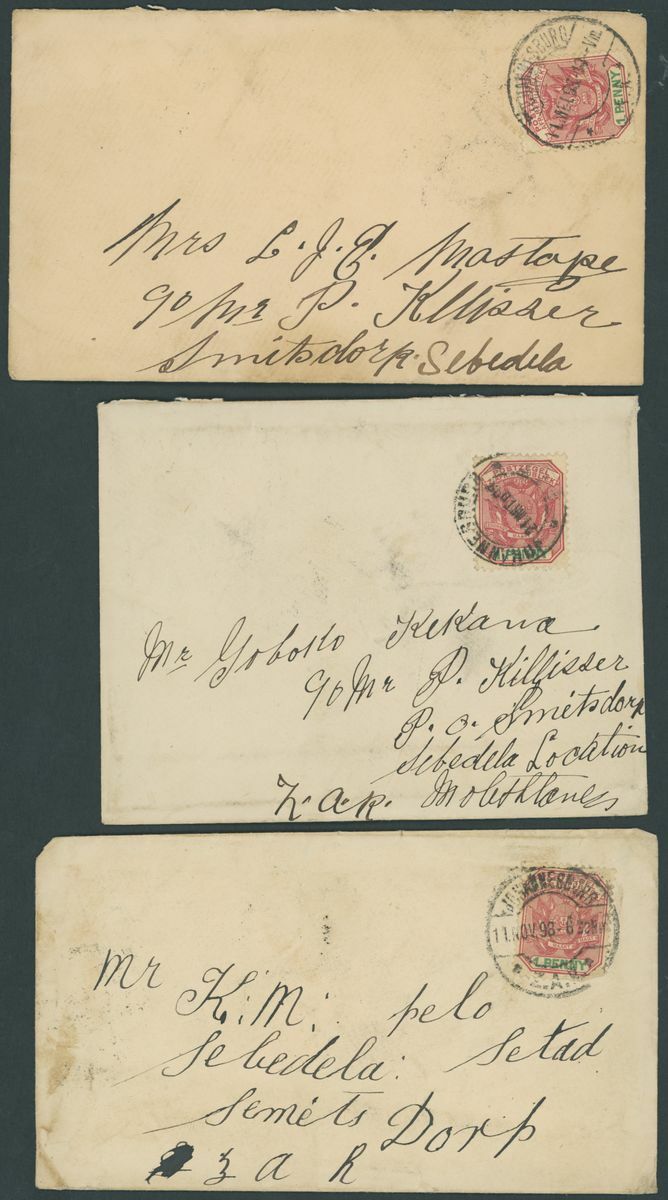 JOHANNESBURG
1 PENNY
Mrs L. J. E. Mastape
c/o Mr P. Killisser
Smitsdorp. Sebedela
POSTZEGEL
JOHANNESBURG
Mr Goboko Kekana
c/o Mr P. Killisser
P. o. Smitsdorp
Sebedela Location
Z. a. R. Moleshtanes
JOHANNESBURG
11.NOV.98
1.PENNY
Z.A.R
Mr
K: M: pelo
Sebedela: Setad
Seméts Dorp
z a R